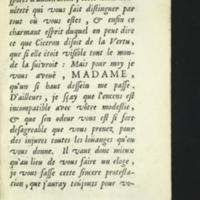 néreté qui vous fait distinguer par
tout où vous estes, & enfin ce
charmant esprit duquel on peut dire
ce que Ciceron disoit de la Vertu,
que si elle étoit visible tout le mon-
de la suivroit : Mais pour moy je
vous avouë, MADAME,
qu'un si haut dessein me passe.
D'ailleurs, je sçay que l'encens est
incompatible avec votre modestie,
& que son odeur vous est si fort
desagreable que vous prenez pour
des injures toutes les loüanges qu'on
vous donne. Il vaut donc mieux
qu'au lieu de vous faire un eloge,
je vous fasse cette sincere protesta-
tion, que j'auray toûjours pour vo-